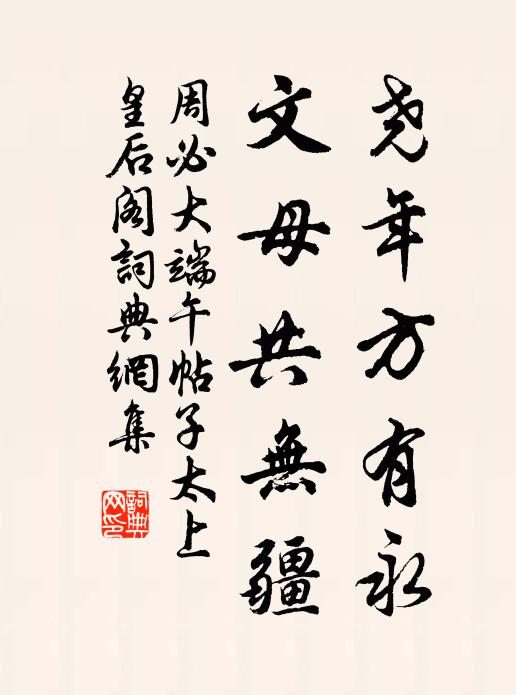 尧年方有永
文母共無疆
周必大端午帖子太上
皇后阁詞典網集
詞典網印